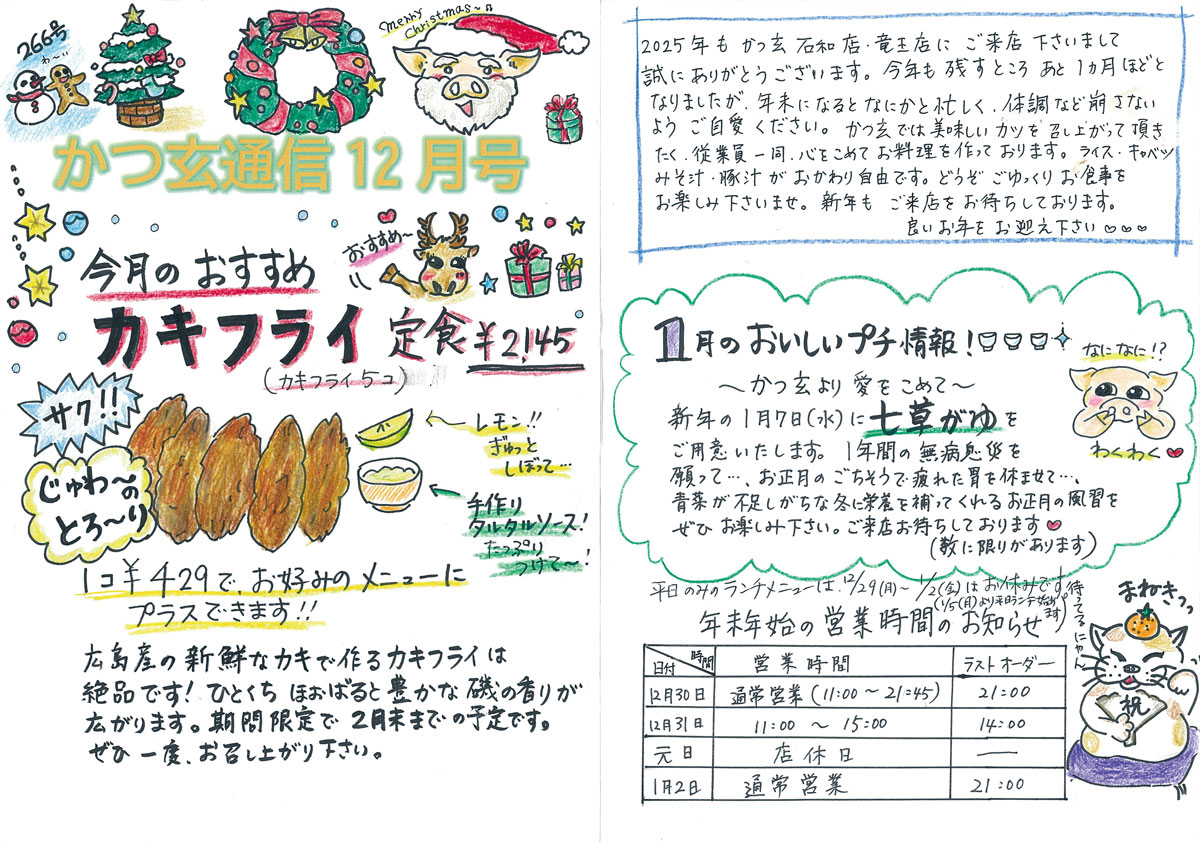 266号
わ〜い
Merry
Christmas〜♫
かつ玄通信12月号
今月のおすすめ
おすすめ〜
カキフライ定食¥2,145
(カキフライ5コ)
サク!!
じゅわ〜の
とろ〜り
レモン!!
ぎゅっと
しぼって…
手作り
タルタルソース!
たっぷり
つけて〜!
1コ¥429で、お好みのメニューに
プラスできます!!
広島産の新鮮なカキで作るカキフライは
絶品です!ひとくちほおばると豊かな磯の香りが
広がります。期間限定で2月末までの予定です。
ぜひ一度、お召し上がり下さい。
2025年もかつ玄石和店・竜王店にご来店下さいまして
誠にありがとうございます。今年も残すところあと1ヵ月ほどと
なりましたが、年末になるとなにかと忙しく、体調など崩さない
ようご自愛ください。かつ玄では美味しいカツを召し上がって頂き
たく、従業員一同、心をこめてお料理を作っております。ライス・キャベツ
みそ汁・豚汁がおかわり自由です。どうぞごゆっくりお食事を
お楽しみ下さいませ。新年もご来店をお待ちしております。
良いお年をお迎え下さい♡♡♡
1月のおいしいプチ情報!
なになに!?
わくわく♥
〜かつ玄より愛をこめて〜
新年の1月7日(水)に七草がゆを
ご用意いたします。1年間の無病息災を
願って…、お正月のごちそうで疲れた胃を休ませて…、
青菜が不足しがちな冬に栄養を補ってくれるお正月の風習を
ぜひお楽しみ下さい。ご来店お待ちしております♥
(数に限りがあります)
平日のみのランチメニューは、12/29(月)〜1/2(金)はお休みです。
(1/5(月)より平日ランチ始めます)
年末年始の営業時間のお知らせ
まねきっっ
待ってるにゃん
祝
日付 時間 営業時間 ラストオーダー
12月30日 通常営業(11:00〜21:45) 21:00
12月31日 11:00〜15:00 14:00
元日 店休日 ―
1月2日 通常営業 21:00